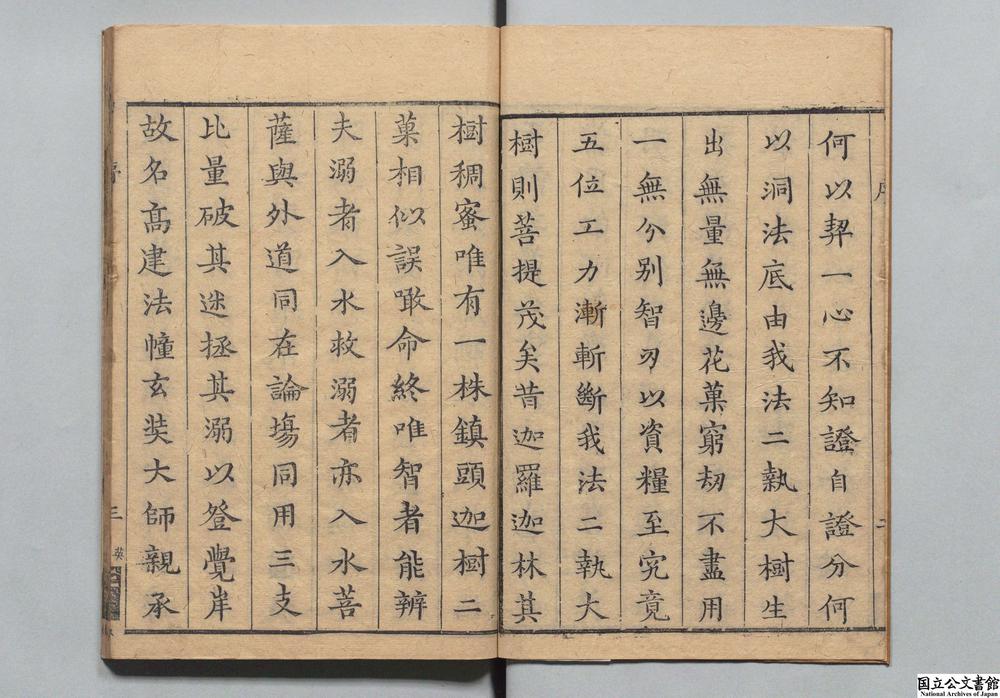 何以契一心不知證自證分何
以洞法底由我法二執大樹生
出無量無邊花菓窮劫不盡用
一無分別智刃以資糧至究竟
五位工力漸斬斷我法二執大
樹則菩提茂矣昔迦羅迦林其
樹稠蜜唯有一株鎮頭迦樹二
菓相似誤噉命終唯智者能辨
夫溺者入水救溺者亦入水菩
薩與外道同在論場同用三支
比量破其迷拯其溺以登覺岸
故名高建法幢玄奘大師親承
三
国立公文書館
National Archives of Japan